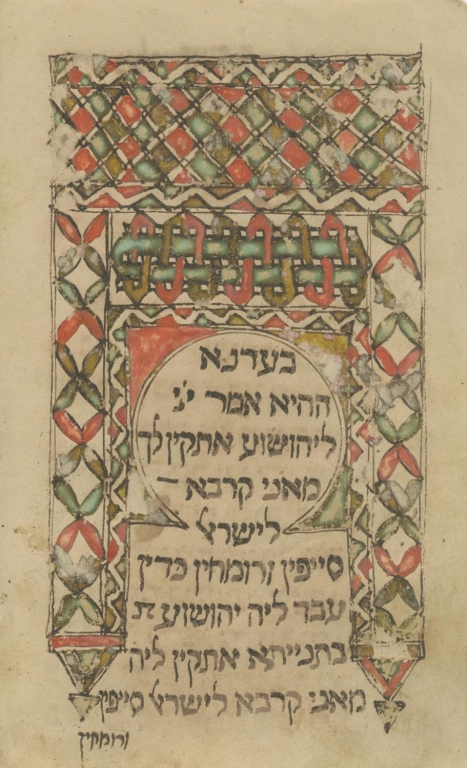 בעדנא
ההיא אמר ייי
ליהושוע אתקין לך
מאני קרבא
לישראל
סייפין ורומחין כדין
עבד ליה יהושוע ת
בתנייתא אתקין ליה
מאני קרבא לישראל סייפין
ורומחין